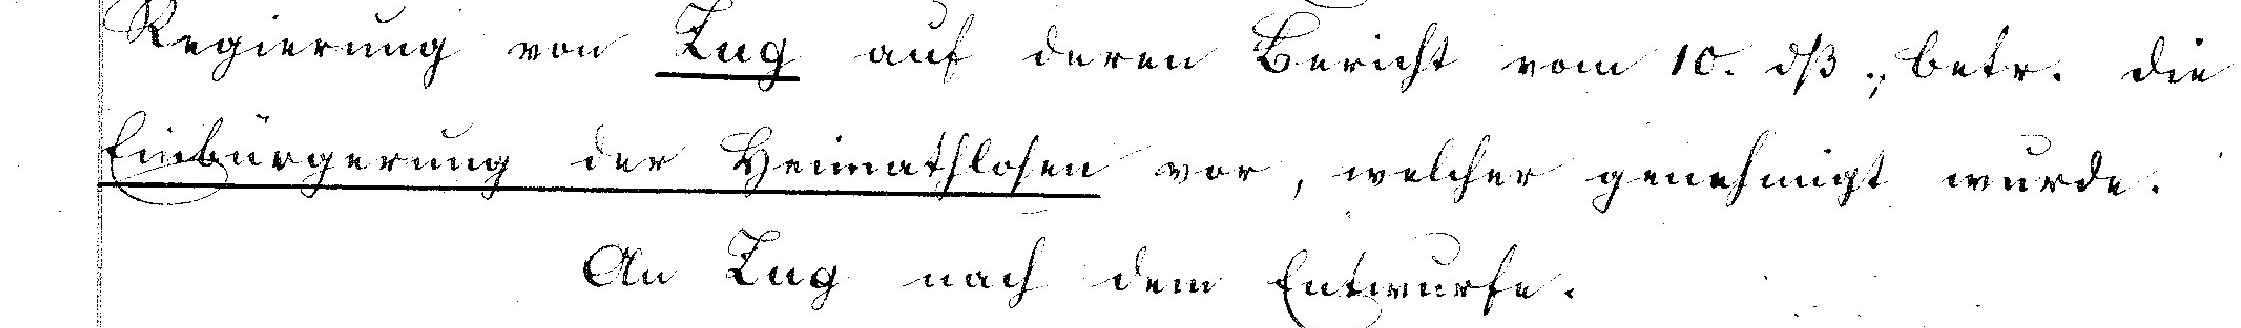 Regierung von Zug auf deren Bericht vom 10. dß., betr. die
Einbürgerung der Heimathlosen vor, welcher genehmigt wurde.
An Zug nach dem Entwurfe.